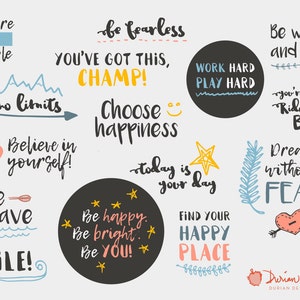 be fearless
YOU'VE GOT THIS,
CHAMP!
WORK HARD
PLAY HARD
Be w
and
no limits
Choose
happiness
you're
Believe in
yourself!
today is
your day
Drea
witho
FEA
Be happy.
Be bright.
Be YOU!
FIND YOUR
HAPPY
PLACE
LE!
DURIAN DE